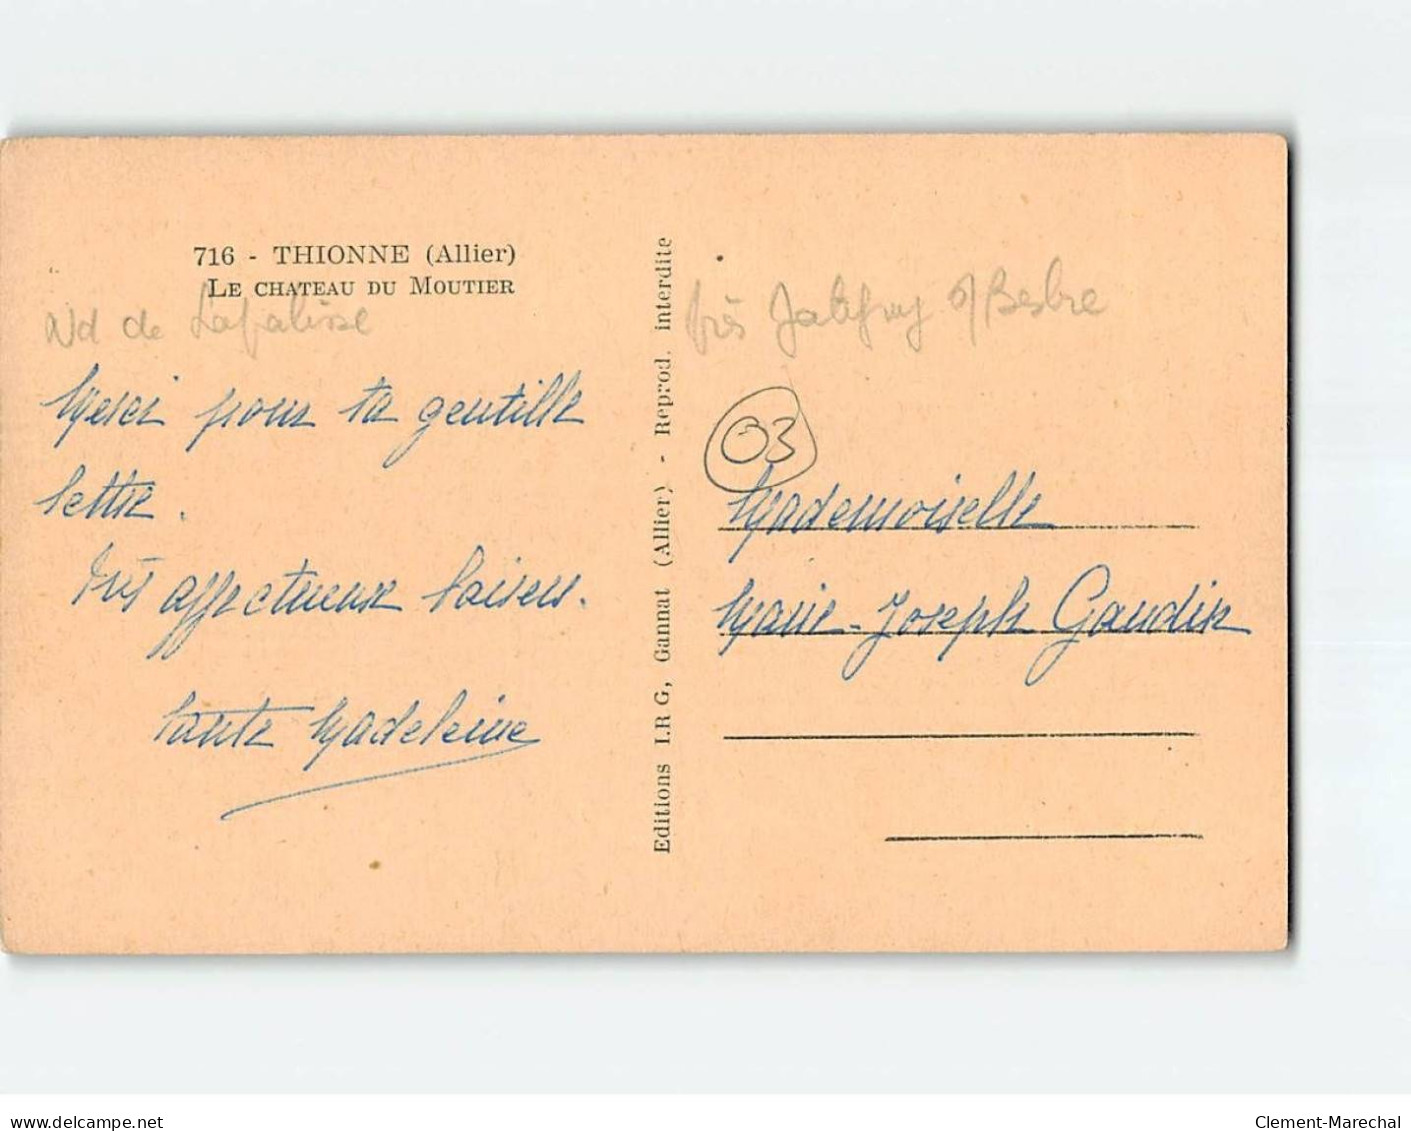 716 - THIONNE (Allier)
LE CHATEAU DU MOUTIER
Nd de Lapalisse
Merci pour ta gentille
lettre.
Très affectueux baisers.
tante Madeleine
Editions I.R G, Gannat (Allier) - Reprod. interdite
près Jaligny s/ Besbre
03
Mademoiselle
Marie-Joseph Gaudin
www.delcampe.net
Clement-Marechal